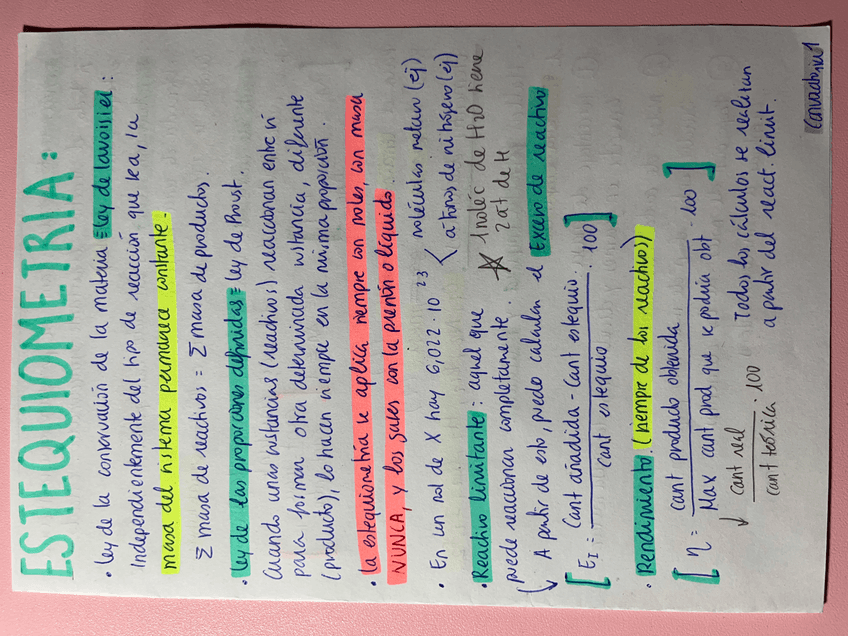 ESTEQUIOMETRIA:
• ley de la conservación de la materia = ley de lavoisier :
Independientemente del tipo de reacción que sea, la
masa del sistema permanece constante.
Σ masa de reactivos = Σ masa de productos.
• ley de las proporciones definidas = ley de Proust.
Cuando unas sustancias (reactivos) reaccionan entre sí
para formar otra determinada sustancia, diferente
(producto), lo hacen siempre en la misma proporción.
• la estequiometría se aplica siempre con moles, con masa
NUNCA, y los gases con la presión o líquido.
• En un mol de X hay 6,022 · 10 23 moléculas metano (ej)
átomos de nitrógeno (ej)
☆ 1 moléc de H2O tiene
2 at de H
• Reactivo limitante : aquel que
puede reaccionar completamente.
↳ A partir de esto, puedo calcular el Exceso de reactivo
[ EI = Cant añadida - Cant estequio. / cant estequio · 100 ]
• Rendimiento. (siempre de los reactivos)
[ η = cant producto obtenida / Max cant prod que se podría obt · 100 ]
↓ cant real / cant teórica · 100
Todos los cálculos se realizan
a partir del react. limit.